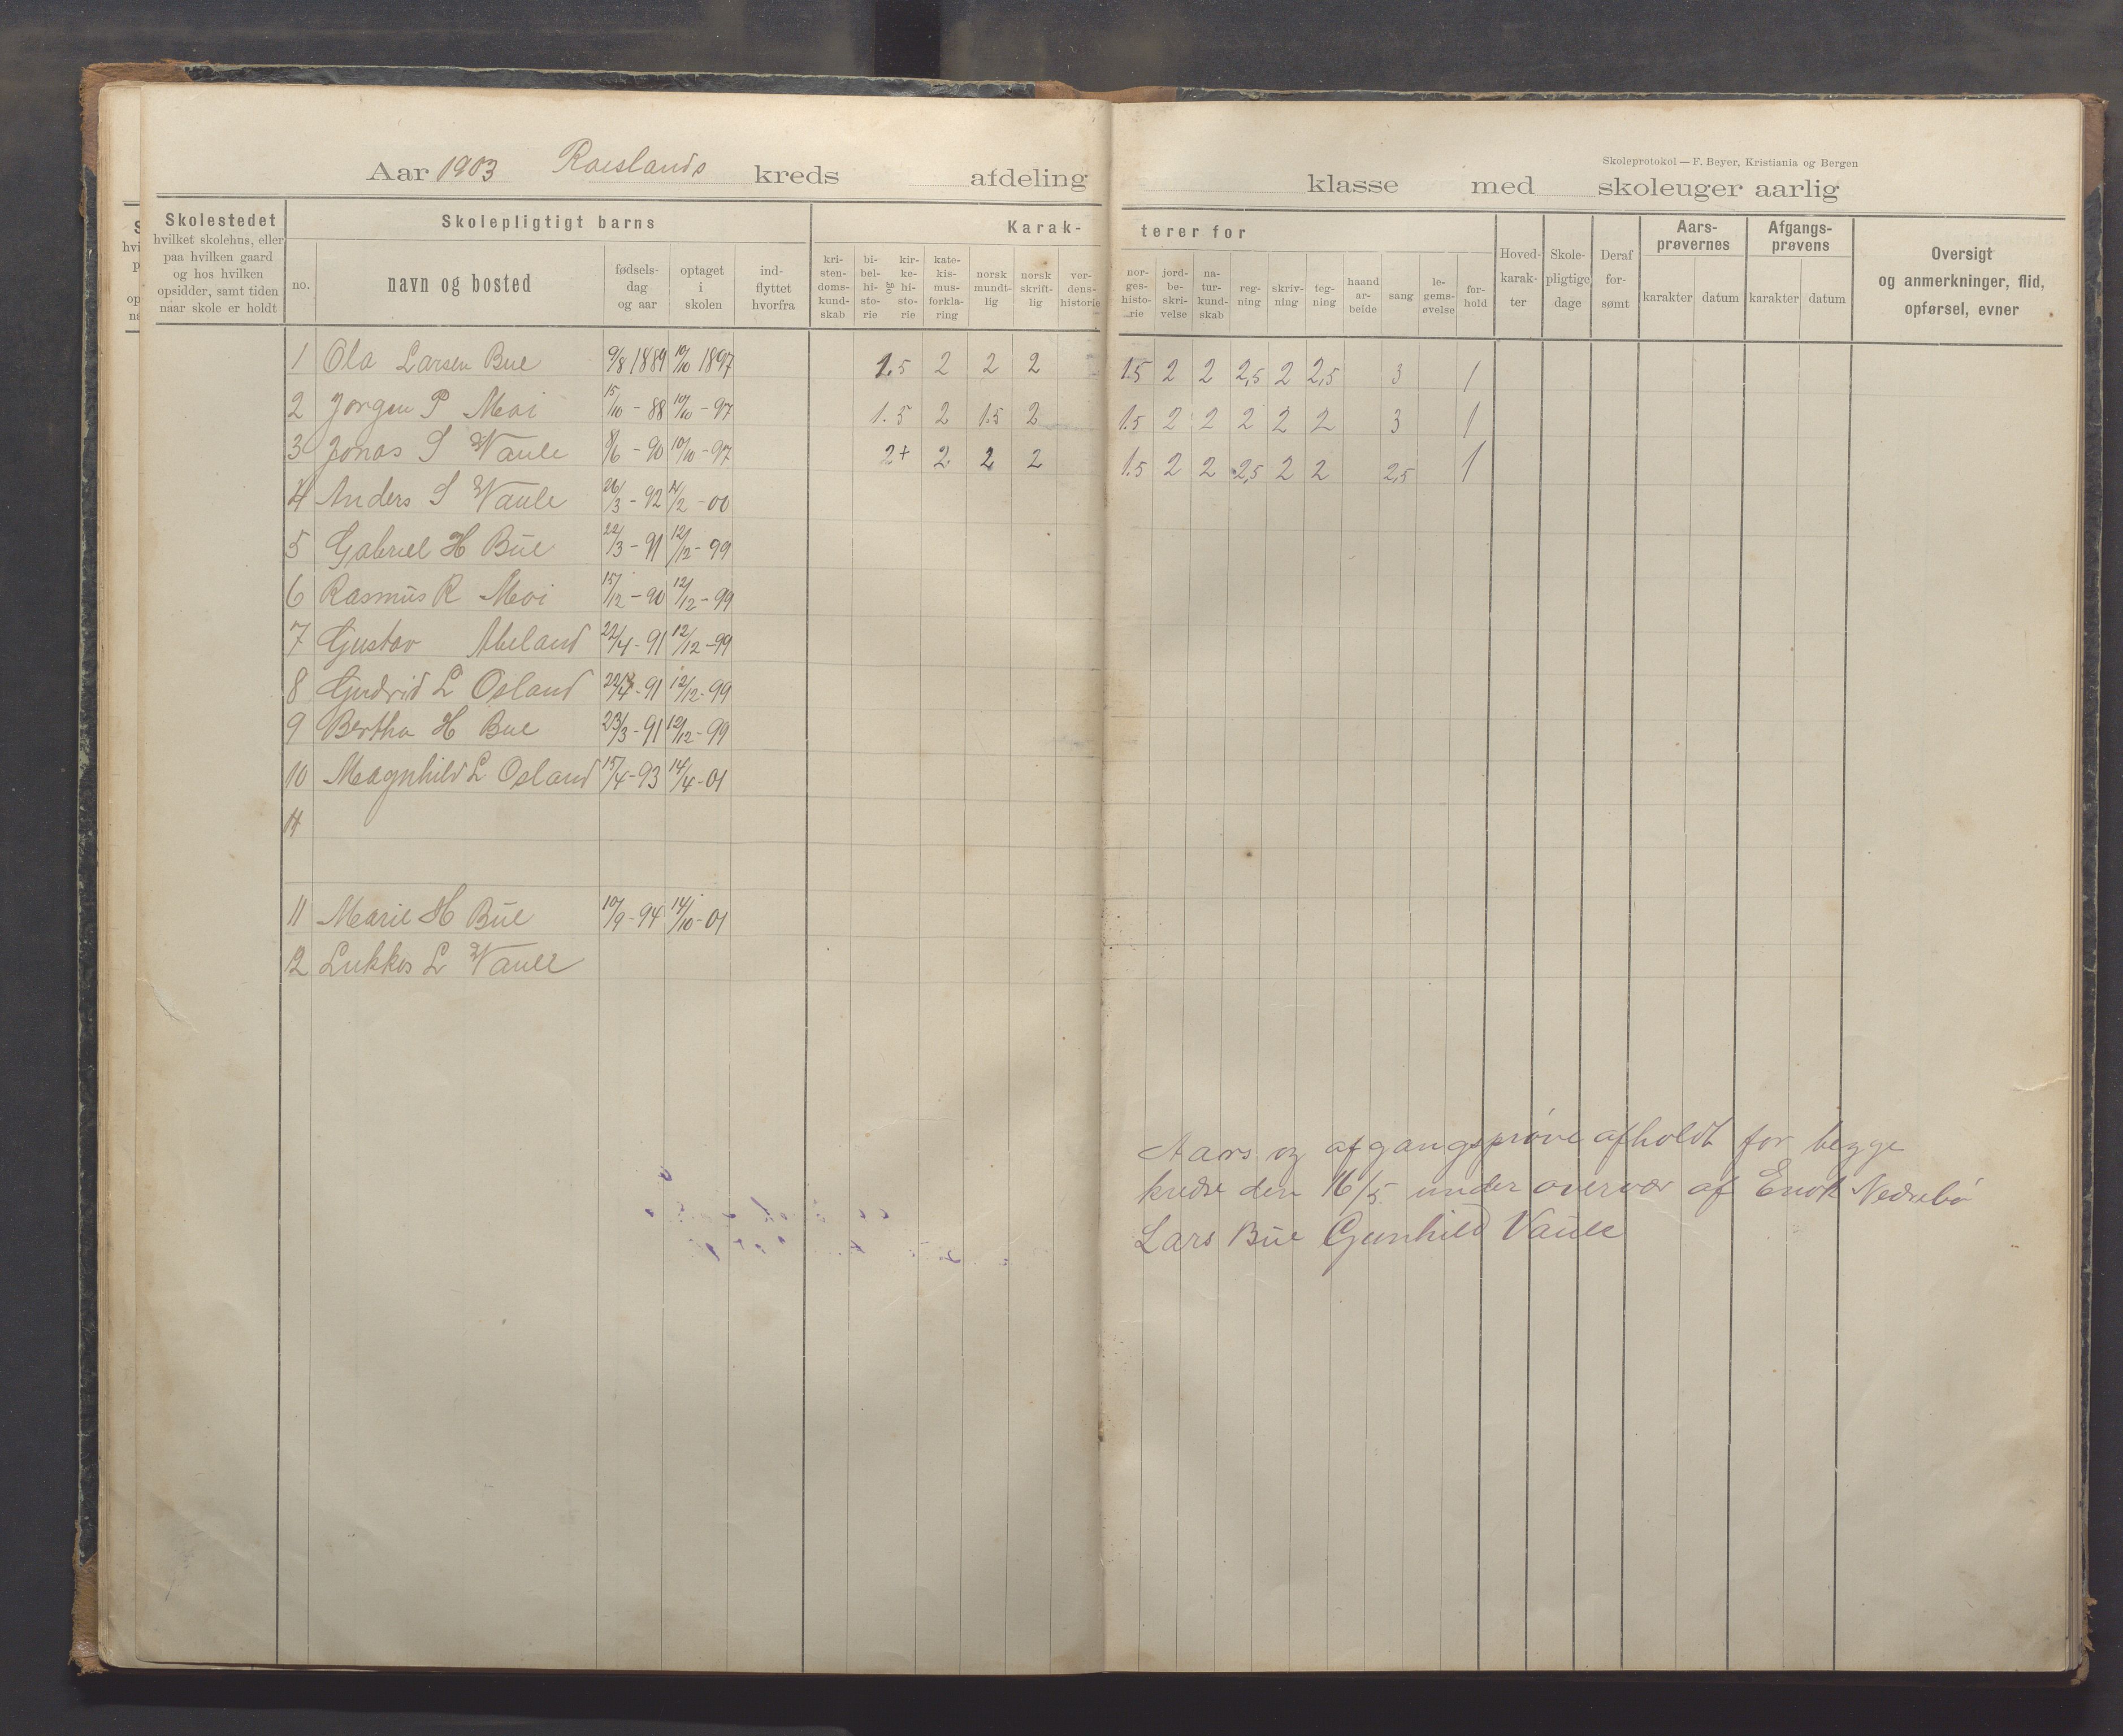 Skoleprotokol — F. Beyer, Kristiania og Bergen
Aar 1903 Roeslands kreds afdeling klasse med skoleuger aarlig
Skolestedet
hvilket skolehus, eller
paa hvilken gaard
og hos hvilken
opsidder, samt tiden
naar skole er holdt
Skolepligtigt barns
no.
navn og bosted
fødsels-
dag
og aar
optaget
i
skolen
ind-
flyttet
hvorfra
Karak-
kri-
sten-
doms-
kund-
skab
bi-
bel-
hi-
sto-
rie
og
kir-
ke-
hi-
sto-
rie
kate-
kis-
mus-
forkla-
ring
norsk
mundt-
lig
norsk
skrift-
lig
ver-
dens-
historie
terer for
nor-
ges-
histo-
rie
jord-
be-
skri-
velse
na-
tur-
kund-
skab
reg-
ning
skriv-
ning
teg-
ning
haand
ar-
beide
sang
le-
gems-
øvelse
for-
hold
Hoved-
karak-
ter
Skole-
pligtige
dage
Deraf
for-
sømt
Aars-
prøvernes
karakter datum
Afgangs-
prøvens
karakter datum
Oversigt
og anmerkninger, flid,
opførsel, evner
1 Ola Larsen Bue 9/8 1889 10/10 1897 1.5 2 2 2 1.5 2 2 2,5 2 2,5 3 1
2 Jørgen P Moi 15/10 - 88 10/10 - 97 1.5 2 1.5 2 1.5 2 2 2 2 2 3 1
3 Jonas S Vaule 8/6 - 90 10/10 - 97 2+ 2 2 2 1.5 2 2 2,5 2 2 2,5 1
4 Anders S Vaule 26/3 - 92 /2 - 00
5 Gabriel H Bue 22/3 - 91 12/12 - 99
6 Rasmus R Moi 15/12 - 90 12/12 - 99
7 Gustav Abeland 22/4 - 91 12/12 - 99
8 Gudrid L Osland 22/4 - 91 12/12 - 99
9 Bertha H Bue 23/3 - 91 12/12 - 99
10 Magnhild L Osland 15/4 - 93 14/4 - 01
11
11 Marie H Bue 10/9 - 94 14/10 - 01
12 Lukkes L Vaule
Aars og afgangsprøve afholdt for begge
kredse den 16/5 under overvær af Enok Nedrebø
Lars Bue Gunhild Vaule